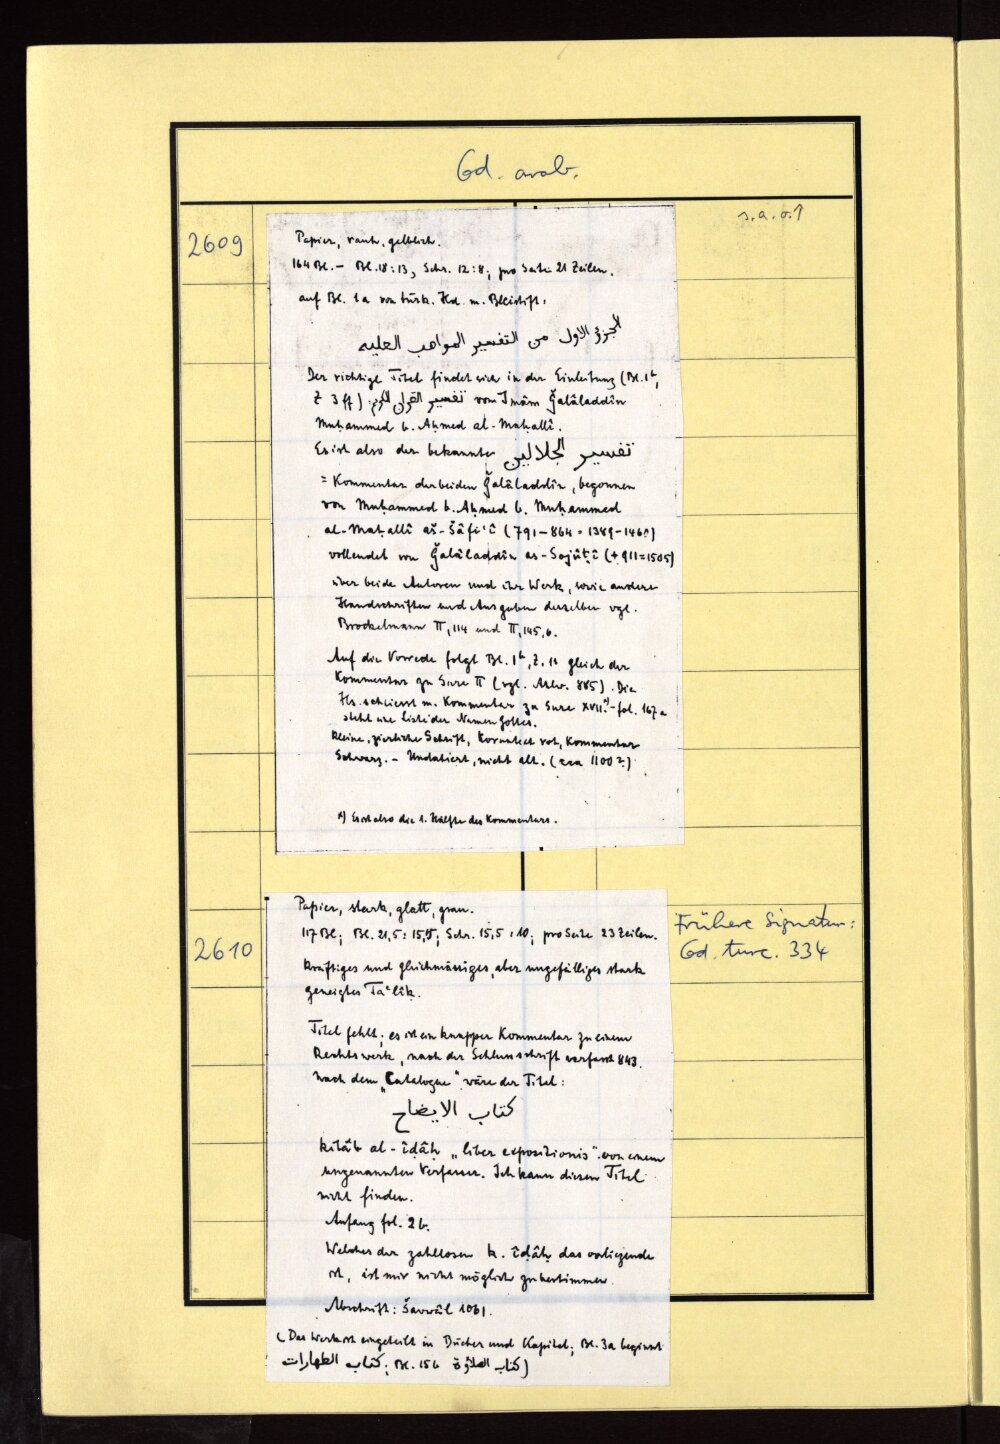 Cod. arab.
s. a. o. ↑
2609
Papier, rauh, gelblich.
164 Bl. – Bl. 18:13, Schr. 12:8; pro Seite 21 Zeilen.
auf Bl. 1a von türk. Hd. m. Bleistift:
الجزؤ الاول من التفسير المواهب العليه
Der richtige Titel findet sich in der Einleitung (Bl. 1b,
Z 3 ff) تفسير القرآن الكريم vom Imâm Ǧalâladdîn
Muḥammed b. Aḥmed al-Maḥallî.
Es ist also der bekannte تفسير الجلالين
= Kommentar der beiden Ǧalâladdîn, begonnen
von Muḥammed b. Aḥmed b. Muḥammed
al-Maḥallî aš-Šâfi'î (791–864 = 1389–1460)
vollendet von Ǧalâladdîn as-Sojûṭî (+ 911=1505)
über beide Autoren und ihr Werk, sowie andere
Handschriften und Ausgaben derselben vgl.
Brockelmann II, 114 und II, 145,6.
Auf die Vorrede folgt Bl. 1b, Z. 11 gleich der
Kommentar zu Sure II (vgl. Ahlw. 885). Die
Hs. schliesst m. Kommentar zu Sure XVII.*) – fol. 167a
steht eine Liste der Namen Gottes.
Kleine, zierliche Schrift, Korantext rot, Kommentar
Schwarz. – Undatiert, nicht alt. (zca 1100?)
*) Es ist also die 1. Hälfte des Kommentars.
2610
Papier, stark, glatt, grau.
117 Bl; Bl. 21,5:15,5; Schr. 15,5:10; pro Seite 23 Zeilen.
Kräftiges und gleichmässiges, aber ungefälliges stark
geneigtes Ta'lîḳ.
Titel fehlt; es ist ein knapper Kommentar zu einem
Rechtswerk, nach der Schlussschrift verfasst 843.
Nach dem „Catalogue“ wäre der Titel:
كتاب الايضاح
Kitâb al-îḍâḥ „liber expositionis“ von einem
ungenannten Verfasser. Ich kann diesen Titel
nicht finden.
Anfang fol. 2b.
Welches der zahllosen K. îḍâḥ das vorliegende
ist, ist mir nicht möglich zu bestimmen.
Abschrift: Šavvâl 1061.
(Das Werk ist eingeteilt in Bücher und Kapitel; Bl. 3a beginnt
كتاب الطهارات; Bl. 15b كتاب الصلاة)
Frühere Signatur:
Cod. turc. 334